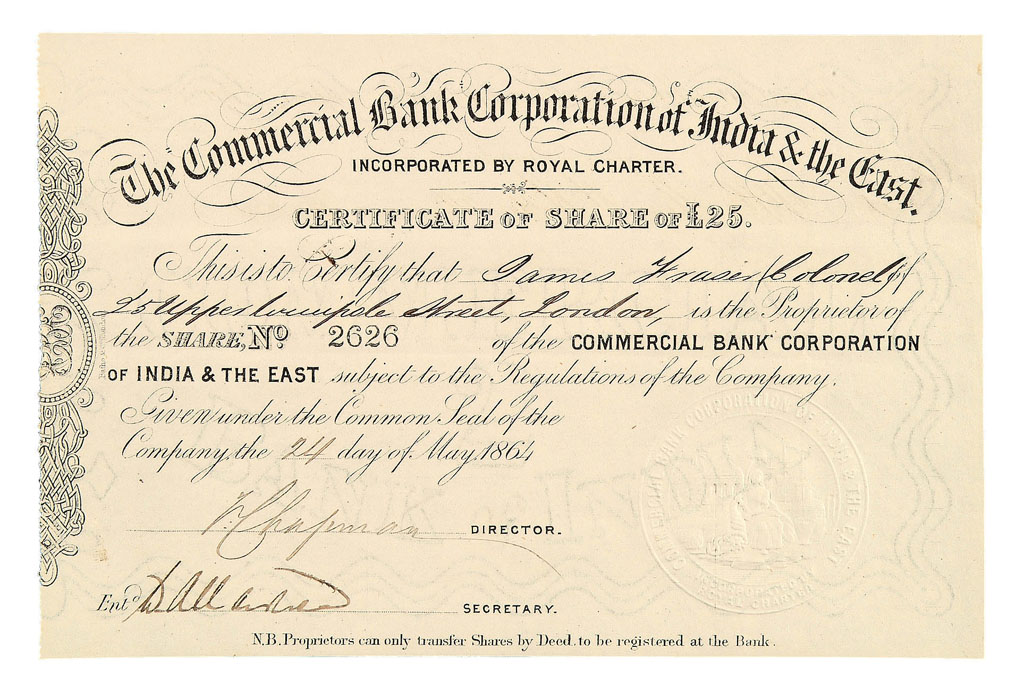 The Commercial Bank Corporation of India & the East.
INCORPORATED BY ROYAL CHARTER.
CERTIFICATE OF SHARE OF £25.
This is to Certify that James Fraser (Colonel) of
25 Upper Street, London, is the Proprietor of
the SHARE, No 2626 of the COMMERCIAL BANK CORPORATION
OF INDIA & THE EAST subject to the Regulations of the Company.
Given under the Common Seal of the
Company, the 24 day of May, 1864
Chapman DIRECTOR.
Entd SECRETARY.
N.B. Proprietors can only transfer Shares by Deed, to be registered at the Bank.
COMMERCIAL BANK CORPORATION OF INDIA & THE EAST